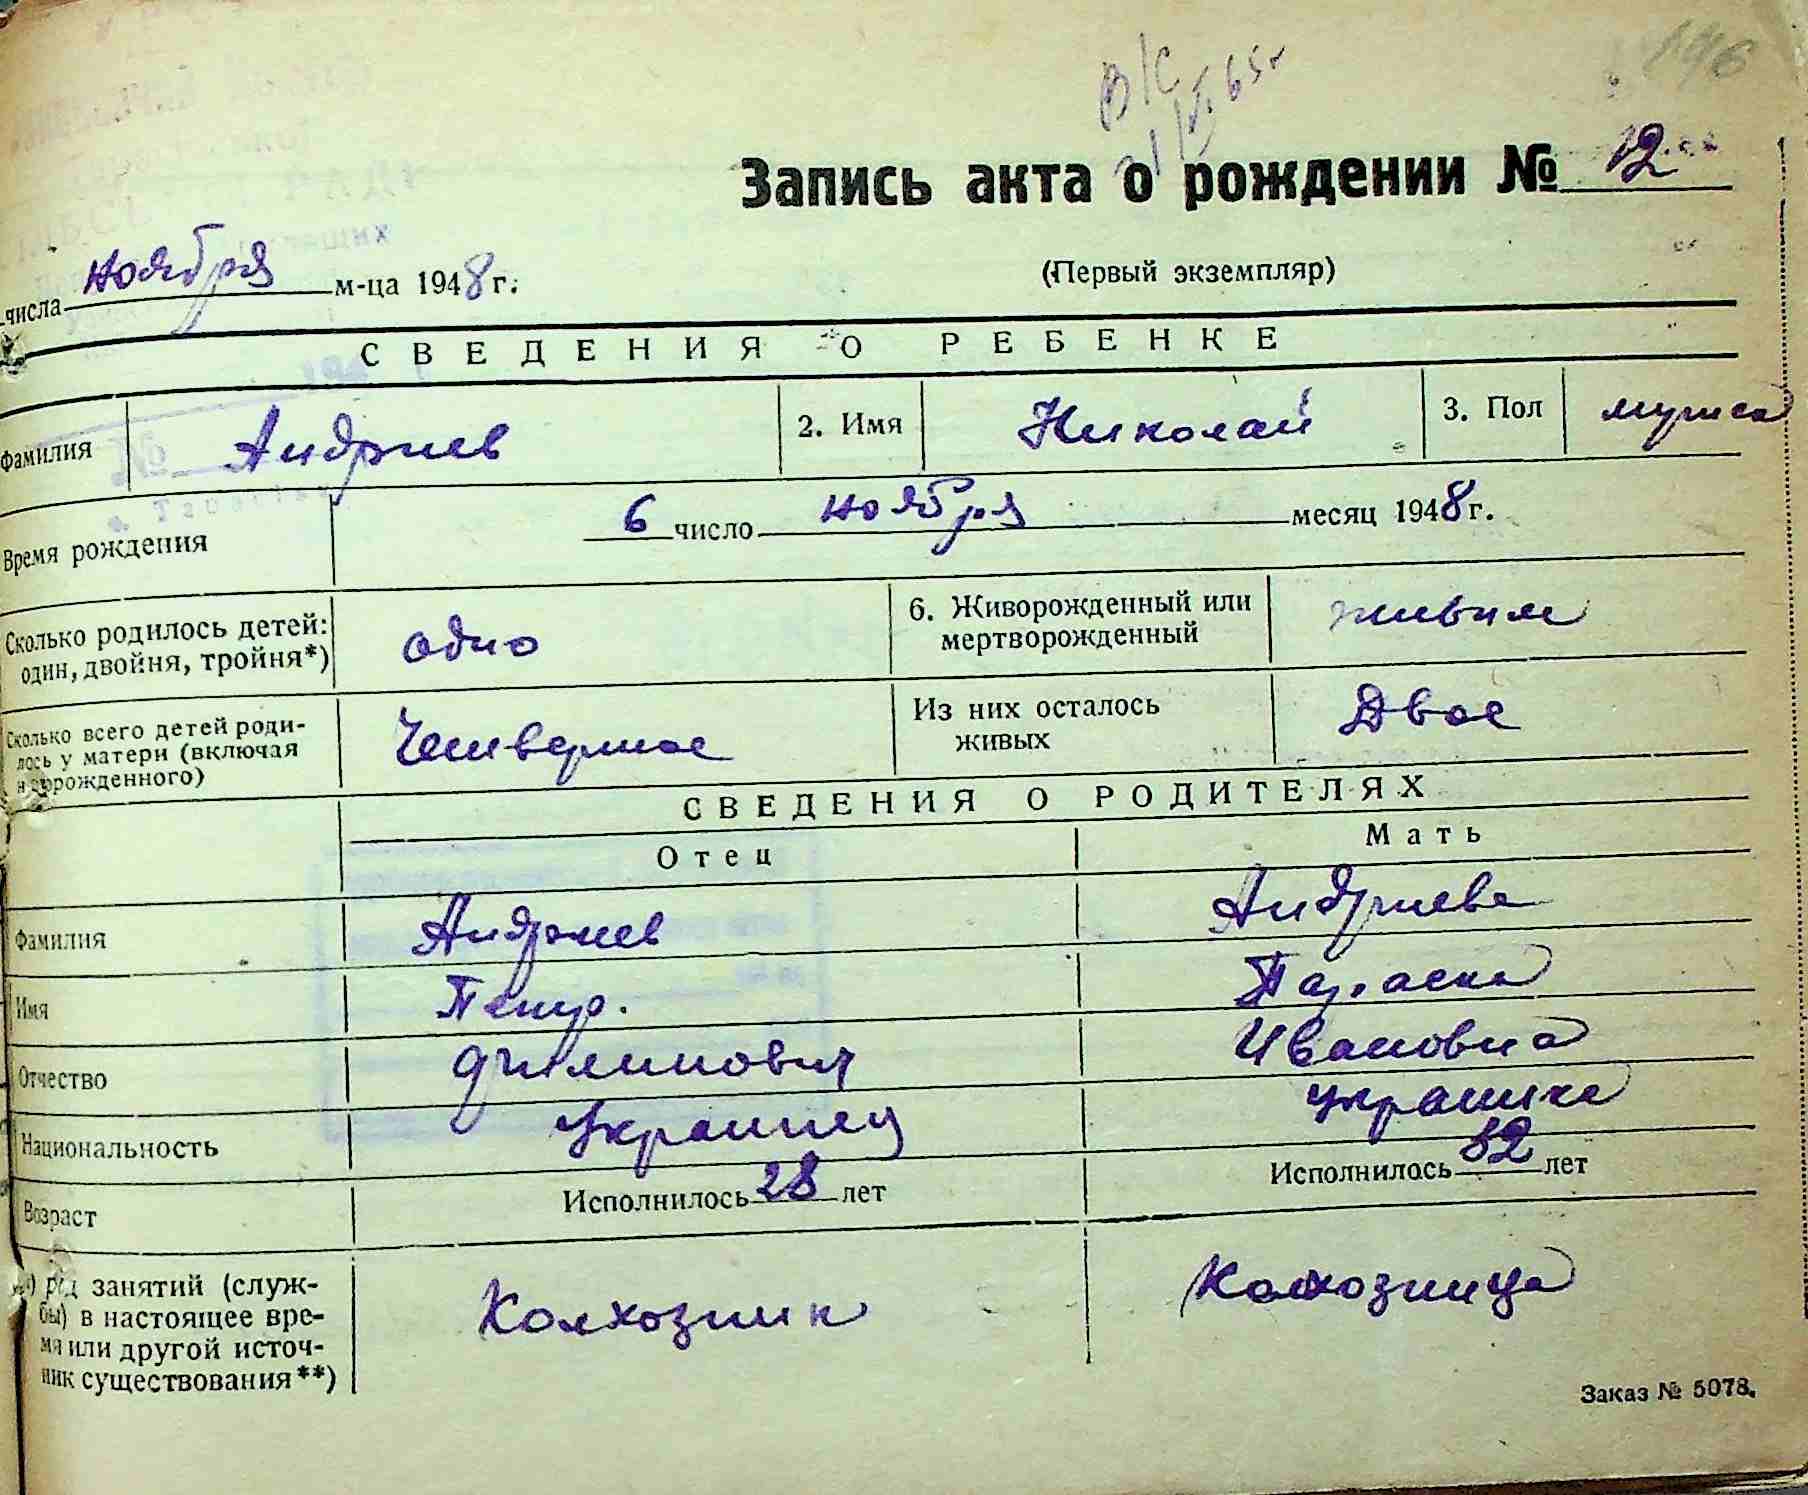 196
В/С
65г
Запись акта о рождении № 12
числа ноября м-ца 1948 г.
(Первый экземпляр)
СВЕДЕНИЯ О РЕБЕНКЕ
Фамилия Андриев 2. Имя Николай 3. Пол
Время рождения 6 число ноября месяц 1948 г.
Сколько родилось детей: один, двойня, тройня*) одно 6. Живорожденный или мертворожденный живым
Сколько всего детей родилось у матери (включая новорожденного) Четверное Из них осталось живых Двое
СВЕДЕНИЯ О РОДИТЕЛЯХ
Отец Мать
Фамилия Андриев Андриева
Имя Петр. Параска
Отчество Филипович Ивановна
Национальность Украинец украинка
Возраст Исполнилось 28 лет Исполнилось 32 лет
род занятий (служ-
бы) в настоящее вре- Колхозник Колхозница
мя или другой источ-
ник существования**)
Заказ № 5078.